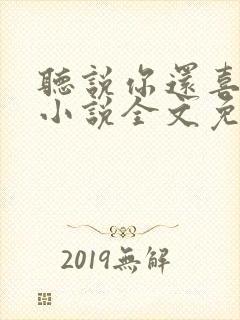 聽說你還喜
小說全文免
2019無解